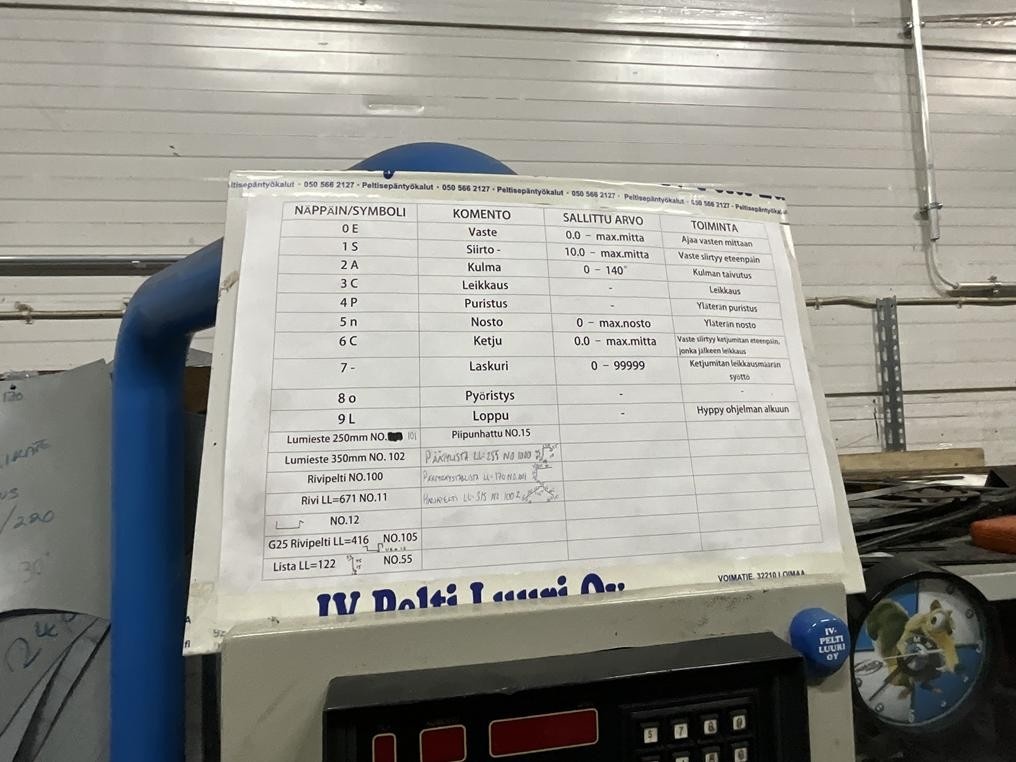 Peltisepäntyökalut - 050 566 2127 - Peltisepäntyökalut - 050 566 2127 - Peltisepäntyökalut - 050 566 2127 - Peltisepäntyökalut - 050 566 2127 - Peltisepäntyökalu
NÄPPÄIN/SYMBOLI KOMENTO SALLITTU ARVO TOIMINTA
0 E Vaste 0.0 – max.mitta Ajaa vasten mittaan
1 S Siirto - 10.0 – max.mitta Vaste siirtyy eteenpäin
2 A Kulma 0 – 140° Kulman taivutus
3 C Leikkaus - Leikkaus
4 P Puristus - Yläterän puristus
5 n Nosto 0 – max.nosto Yläterän nosto
6 C Ketju 0.0 – max.mitta Vaste siirtyy ketjumitan eteenpäin,
jonka jälkeen leikkaus
7 - Laskuri 0 – 99999 Ketjumitan leikkausmäärän
syöttö
8 o Pyöristys - -
9 L Loppu - Hyppy ohjelman alkuun
Lumieste 250mm NO. 101 Piipunhattu NO.15
Lumieste 350mm NO. 102 LL-255 NO 1000
Rivipelti NO.100 LL-170 NO.
Rivi LL=671 NO.11 LL-315 NO 1002
NO.12
G25 Rivipelti LL=416 NO.105
Lista LL=122 NO.55
VOIMATIE, 32210 LOIMAA
IV Pelti Luuri Oy
IV-
PELTI
LUURI
OY
S 7 8 9